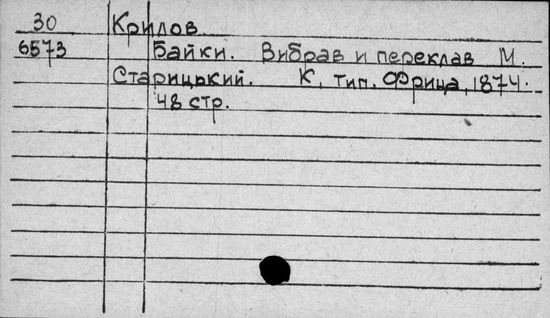 30 Крилов
6573 Байки. Вибрав и переклав М.
Старицький. К, тип. Фрица, 1874.
48 стр.